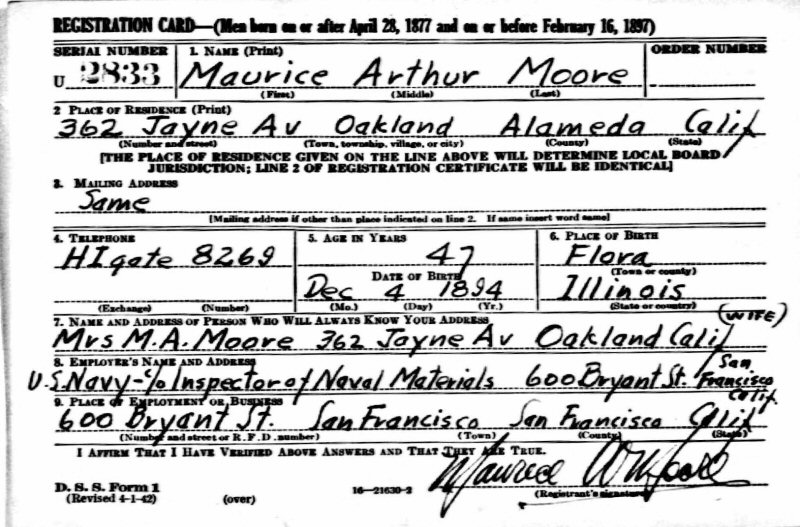 REGISTRATION CARD—(Men born on or after April 28, 1877 and on or before February 16, 1897)
SERIAL NUMBER 1. NAME (Print) ORDER NUMBER
U 2833 Maurice Arthur Moore
(First) (Middle) (Last)
2 PLACE OF RESIDENCE (Print)
362 Jayne Av Oakland Alameda Calif
(Number and street) (Town, township, village, or city) (County) (State)
[THE PLACE OF RESIDENCE GIVEN ON THE LINE ABOVE WILL DETERMINE LOCAL BOARD
JURISDICTION; LINE 2 OF REGISTRATION CERTIFICATE WILL BE IDENTICAL]
3. MAILING ADDRESS
Same
[Mailing address if other than place indicated on line 2. If same insert word same]
4. TELEPHONE 5. AGE IN YEARS 6. PLACE OF BIRTH
HIgate 8269 47 Flora
DATE OF BIRTH (Town or county)
Dec 4 1894 Illinois
(Exchange) (Number) (Mo.) (Day) (Yr.) (State or country)
7. NAME AND ADDRESS OF PERSON WHO WILL ALWAYS KNOW YOUR ADDRESS (WIFE)
Mrs M.A. Moore 362 Jayne Av Oakland Calif
8. EMPLOYER'S NAME AND ADDRESS
U.S. Navy-c/o Inspector of Naval Materials 600 Bryant St. San Francisco Calif.
9. PLACE OF EMPLOYMENT OR BUSINESS
600 Bryant St. San Francisco San Francisco Calif
(Number and street or R. F. D. number) (Town) (County) (State)
I AFFIRM THAT I HAVE VERIFIED ABOVE ANSWERS AND THAT THEY ARE TRUE.
Maurice A Moore
D. S. S. Form 1
(Revised 4-1-42) (over) 16—21630-2 (Registrant's signature)